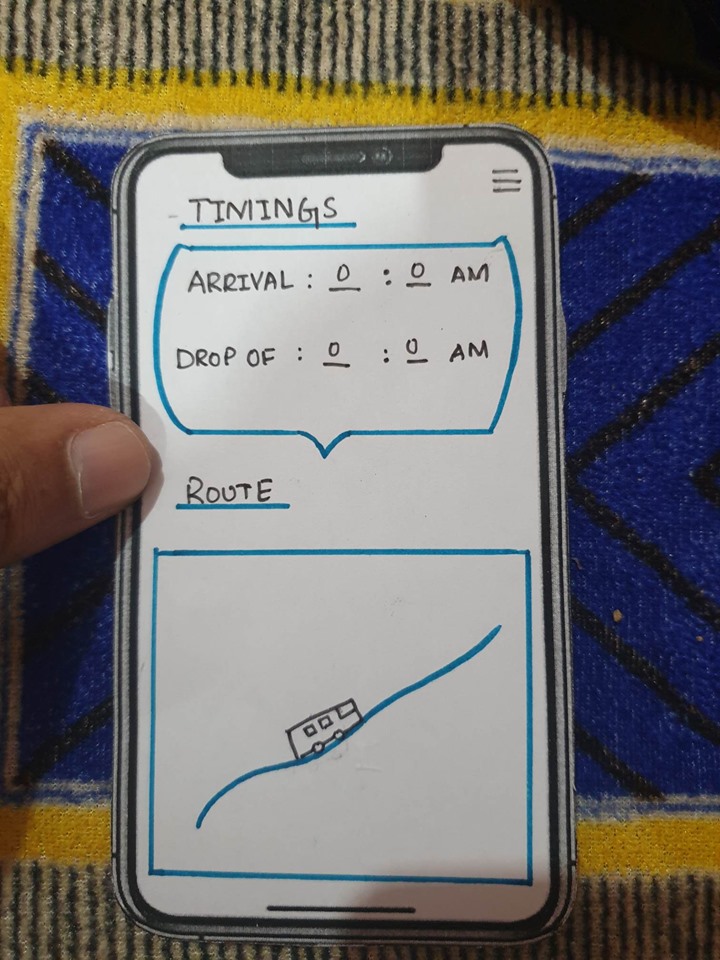 TIMINGS
ARRIVAL : 0 : 0 AM
DROP OF : 0 : 0 AM
ROUTE